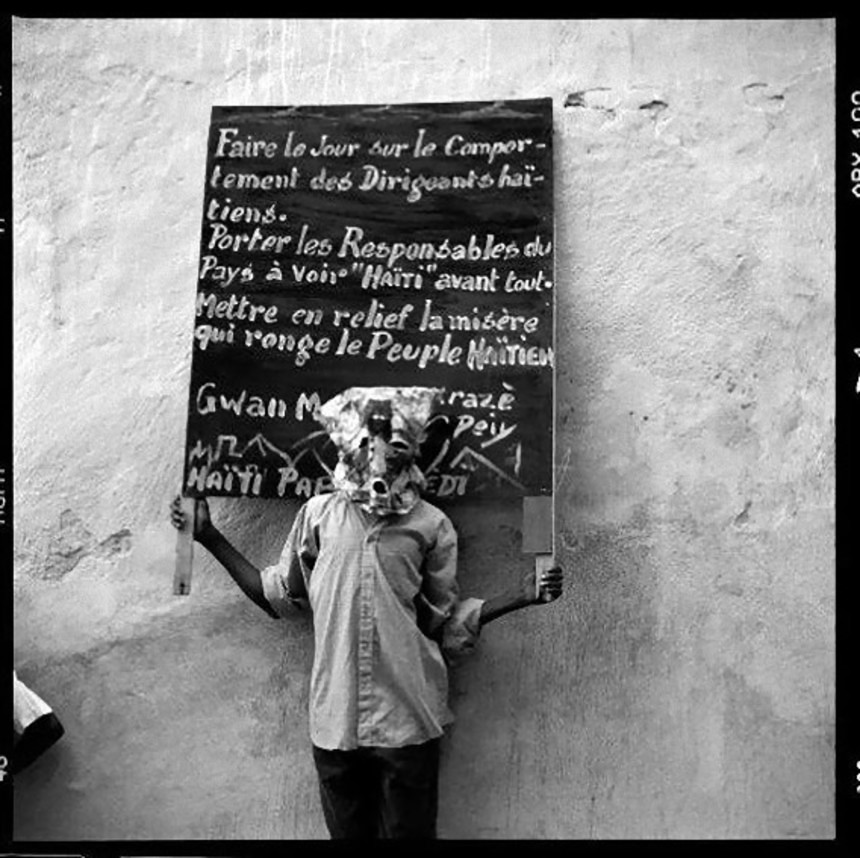 Faire le Jour sur le Compor-
tement des Dirigeants haï-
tiens.
Porter les Responsables du
Pays à voir "HAÏTI" avant tout.
Mettre en relief la misère
qui ronge le Peuple HAÏTIEN
Gwan M
Peiy
HAÏTI